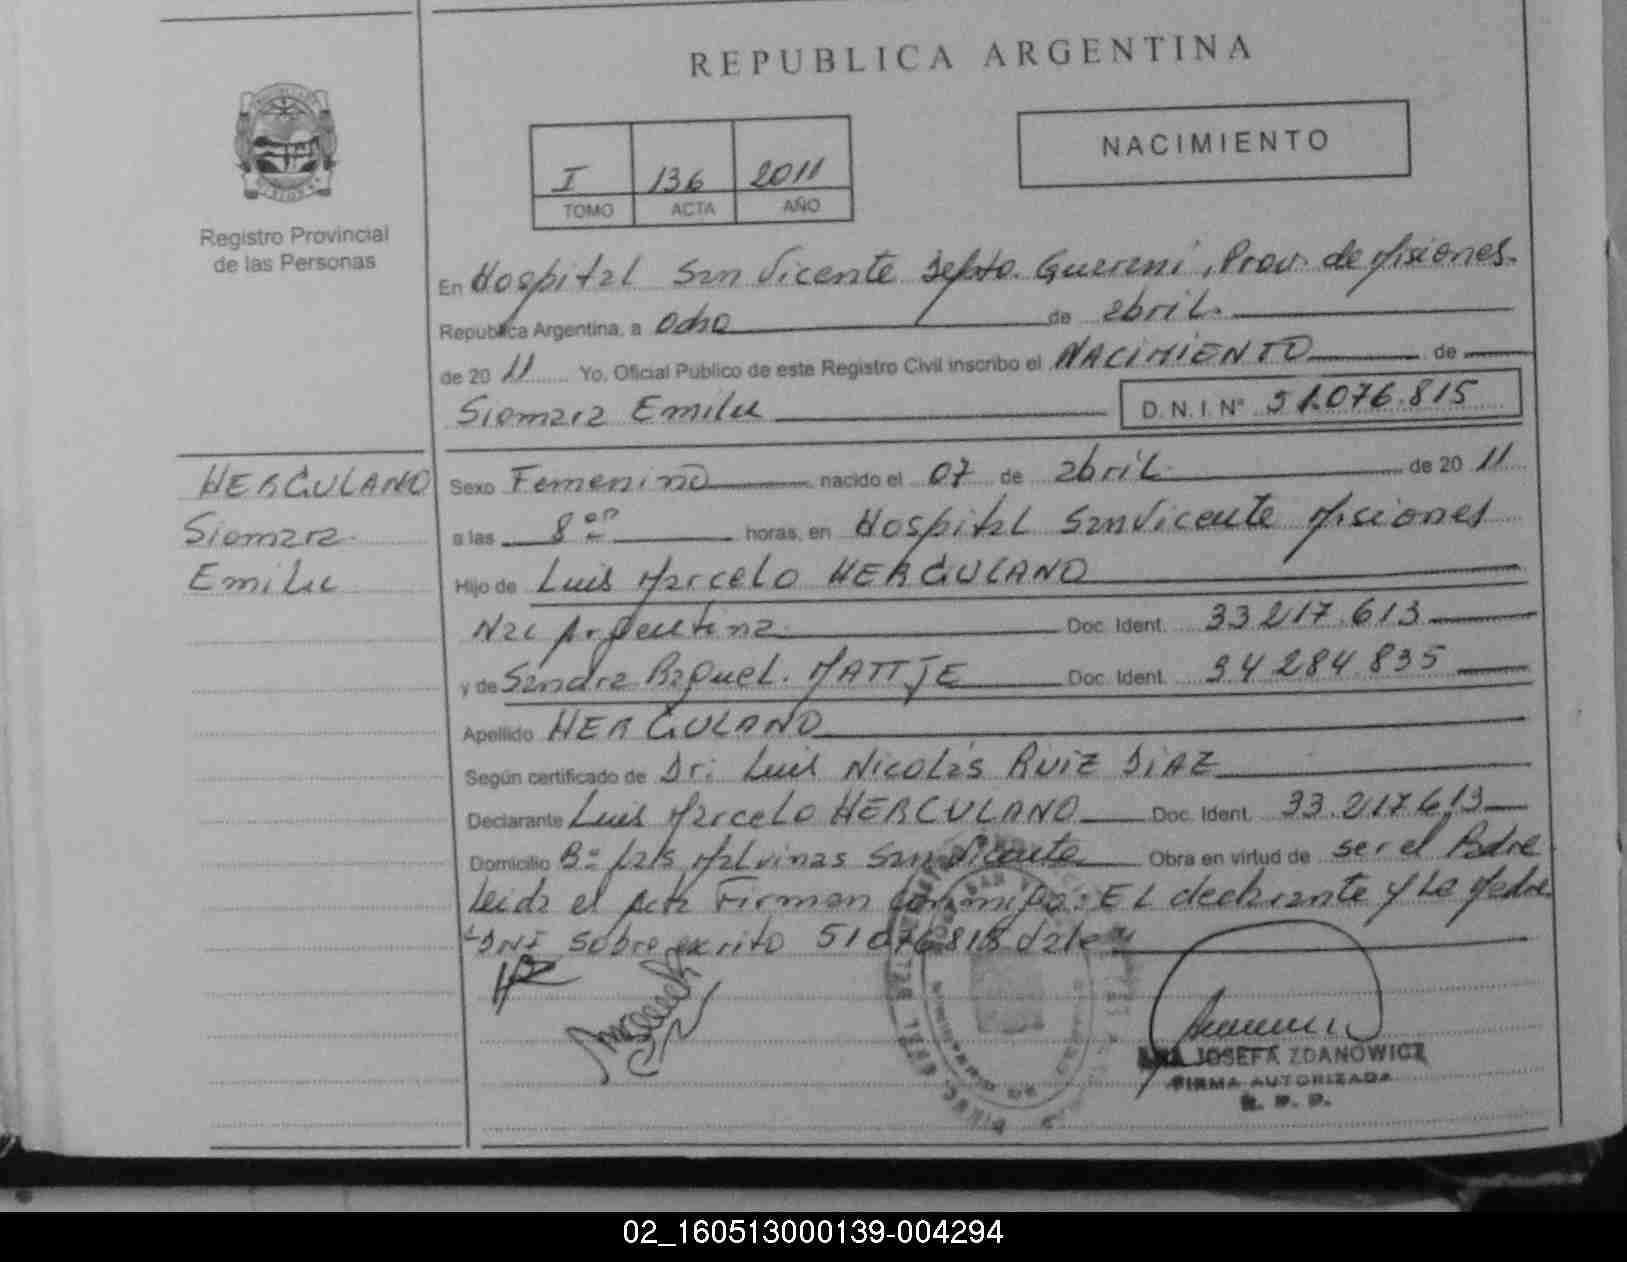 REPUBLICA ARGENTINA
NACIMIENTO
I 136 2011
TOMO ACTA AÑO
Registro Provincial
de las Personas
En Hospital San Vicente Depto. Guarani, Prov. de Misiones.
Republica Argentina, a Ocho de abril.
de 20 11 Yo, Oficial Publico de este Registro Civil inscribo el NACIMIENTO de
Siomara Emilu D.N.I. Nº 51.076.815
HERCULANO
Siomara
Emilu
Sexo Femenino nacido el 07 de abril de 20 11
a las 8 horas, en Hospital San Vicente Misiones
Hijo de Luis Marcelo HERCULANO
Nac Argentina Doc. Ident. 33.217.613
y de Sandra Raquel. MATTJE Doc. Ident. 34 284.835
Apellido HERCULANO
Según certificado de Dr: Luis Nicolás RUIZ DIAZ
Declarante Luis Marcelo HERCULANO Doc. Ident. 33.217.613
Domicilio Bº Las Malvinas San Vicente Obra en virtud de ser el Padre
Leida el Acta Firman conmigo: El declarante y La Madre
DNI sobre 51076815 dale
JOSEFA ZDANOWICZ
FIRMA AUTORIZADA
R. P. P.
02_160513000139-004294